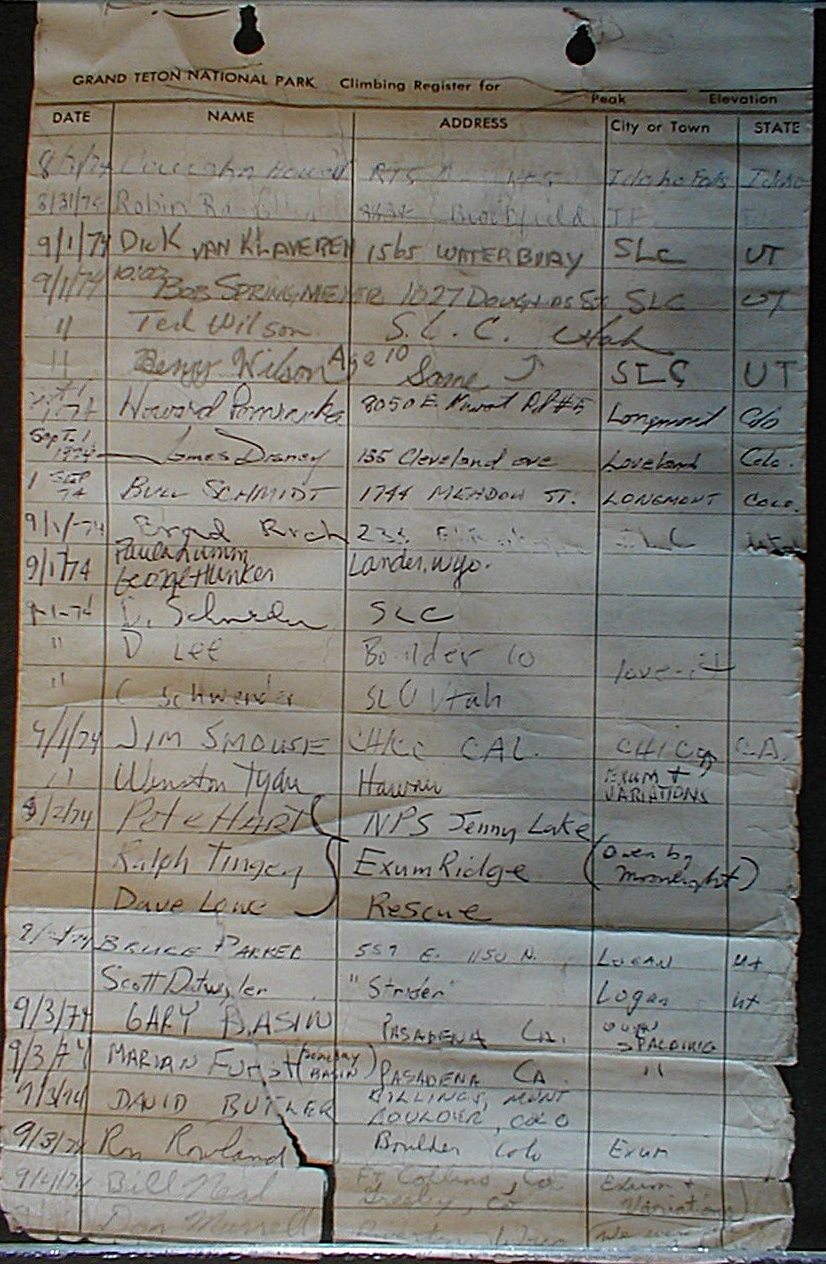 GRAND TETON NATIONAL PARK Climbing Register for
Peak Elevation
DATE NAME ADDRESS City or Town STATE
Idaho Falls Idaho
8/31/74 Robin
9/1/74 Dick VAN KLAVEREN 1565 WATERBURY SLC UT
9/1/74 10:00 BOB SPRINGMEYER 1027 DOUGLAS ST SLC UT
" Ted Wilson S. L. C. Utah
" Benjy Wilson Age 10 Same SLC UT
Howard 8050 E. Rd #5 Longmont Colo
Sept. 1 1974 James Disney 135 Cleveland ave Loveland Colo.
1 SEP 74 BILL SCHMIDT 1744 MEADOW ST. LONGMONT COLO.
9/1/74 Brad Rich SLC Utah
Paula Lumm
9/1/74 George Hunker Lander, Wyo.
9-1-74 SLC
" D LEE Boulder Co love it
" C Schwender SLC Utah
9/1/74 JIM SMOUSE CHICO CAL. CHICO CA.
" Winston Hawaii EXUM + VARIATIONS
9/2/74 Pete HART NPS Jenny Lake
Ralph Tingey Exum Ridge (Owen by Moonlight)
Dave Lowe Rescue
BRUCE PARKER 557 E. 1150 N. LOGAN Ut
Scott Datwyler "Strider" Logan Ut
9/3/74 GARY BASIN PASADENA CA. OWEN SPALDING
9/3/74 MARIAN (BASIN) PASADENA CA. "
9/3/74 DAVID BUTLER BILLINGS, MONT
BOULDER, COLO
9/3/74 Ron Rowland Boulder Colo Exum
Bill Neal Ft Collins, Co Exum +
Greeley, Co Variation
Don